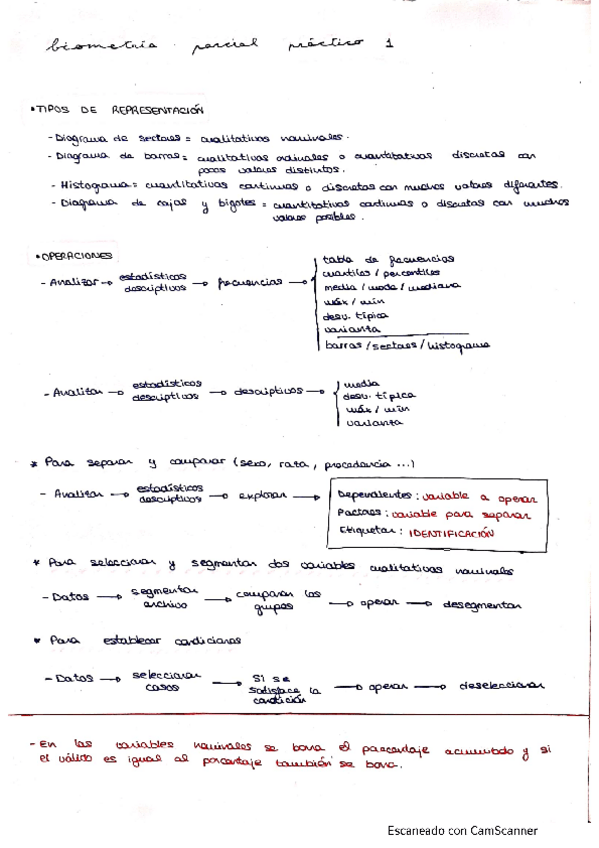 biometría parcial práctico 1
•TIPOS DE REPRESENTACIÓN
- Diagrama de sectores = cualitativas nominales.
- Diagrama de barras = cualitativas ordinales o cuantitativas discretas con
pocos valores distintos.
- Histograma = cuantitativas continuas o discretas con muchos valores diferentes.
- Diagrama de cajas y bigotes = cuantitativas continuas o discretas con muchos
valores posibles.
•OPERACIONES
- Analizar → estadísticos descriptivos → frecuencias →
tabla de frecuencias
cuantiles / percentiles
media / moda / mediana
máx / mín
desv. típica
varianza
barras / sectores / histograma
- Analizar → estadísticos descriptivos → descriptivos →
media
desv. típica
máx / mín
varianza
* Para separar y comparar (sexo, raza, procedencia ...)
- Analizar → estadísticos descriptivos → explorar →
Dependientes : variable a operar
Factores : variable para separar
Etiquetar : IDENTIFICACIÓN
* Para seleccionar y segmentar dos variables cualitativas nominales
- Datos → segmentar archivo → comparar los grupos → operar → desegmentar
* Para establecer condiciones
- Datos → seleccionar casos → Si se satisface la condición → operar → deseleccionar
- En las variables nominales se borra el porcentaje acumulado y si
el válido es igual al porcentaje también se borra.
Escaneado con CamScanner